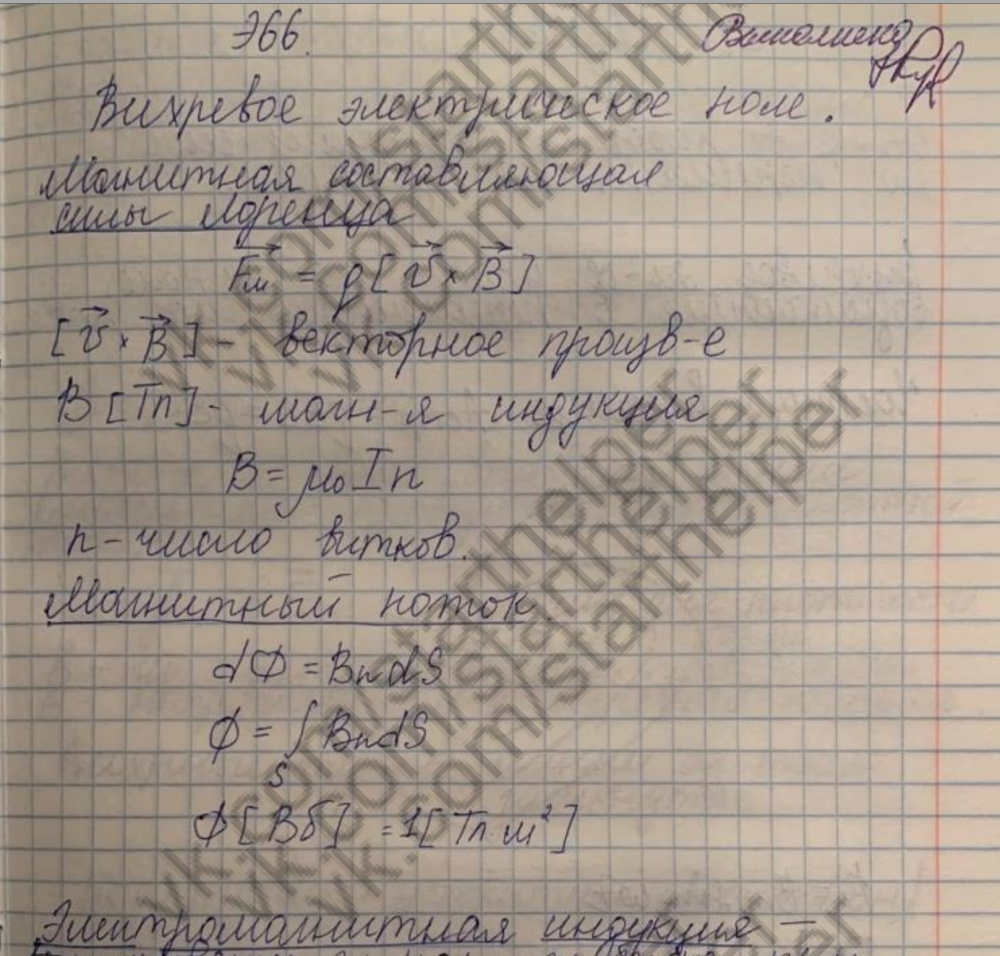 Э66.
Выполнено
Вихревое электрическое поле.
Магнитная составляющая
силы Лоренца
Fм = q[v × B]
[v × B] - векторное произв-е
B [Тл] - магн-я индукция
B = μ₀In
n - число витков.
Магнитный поток.
dФ = BndS
Ф = ∫ BndS
S
Ф [Вб] = 1[Тл м²]
Электромагнитная индукция –
vk.com/starthelper
vk.com/starthelper
vk.com/starthelper